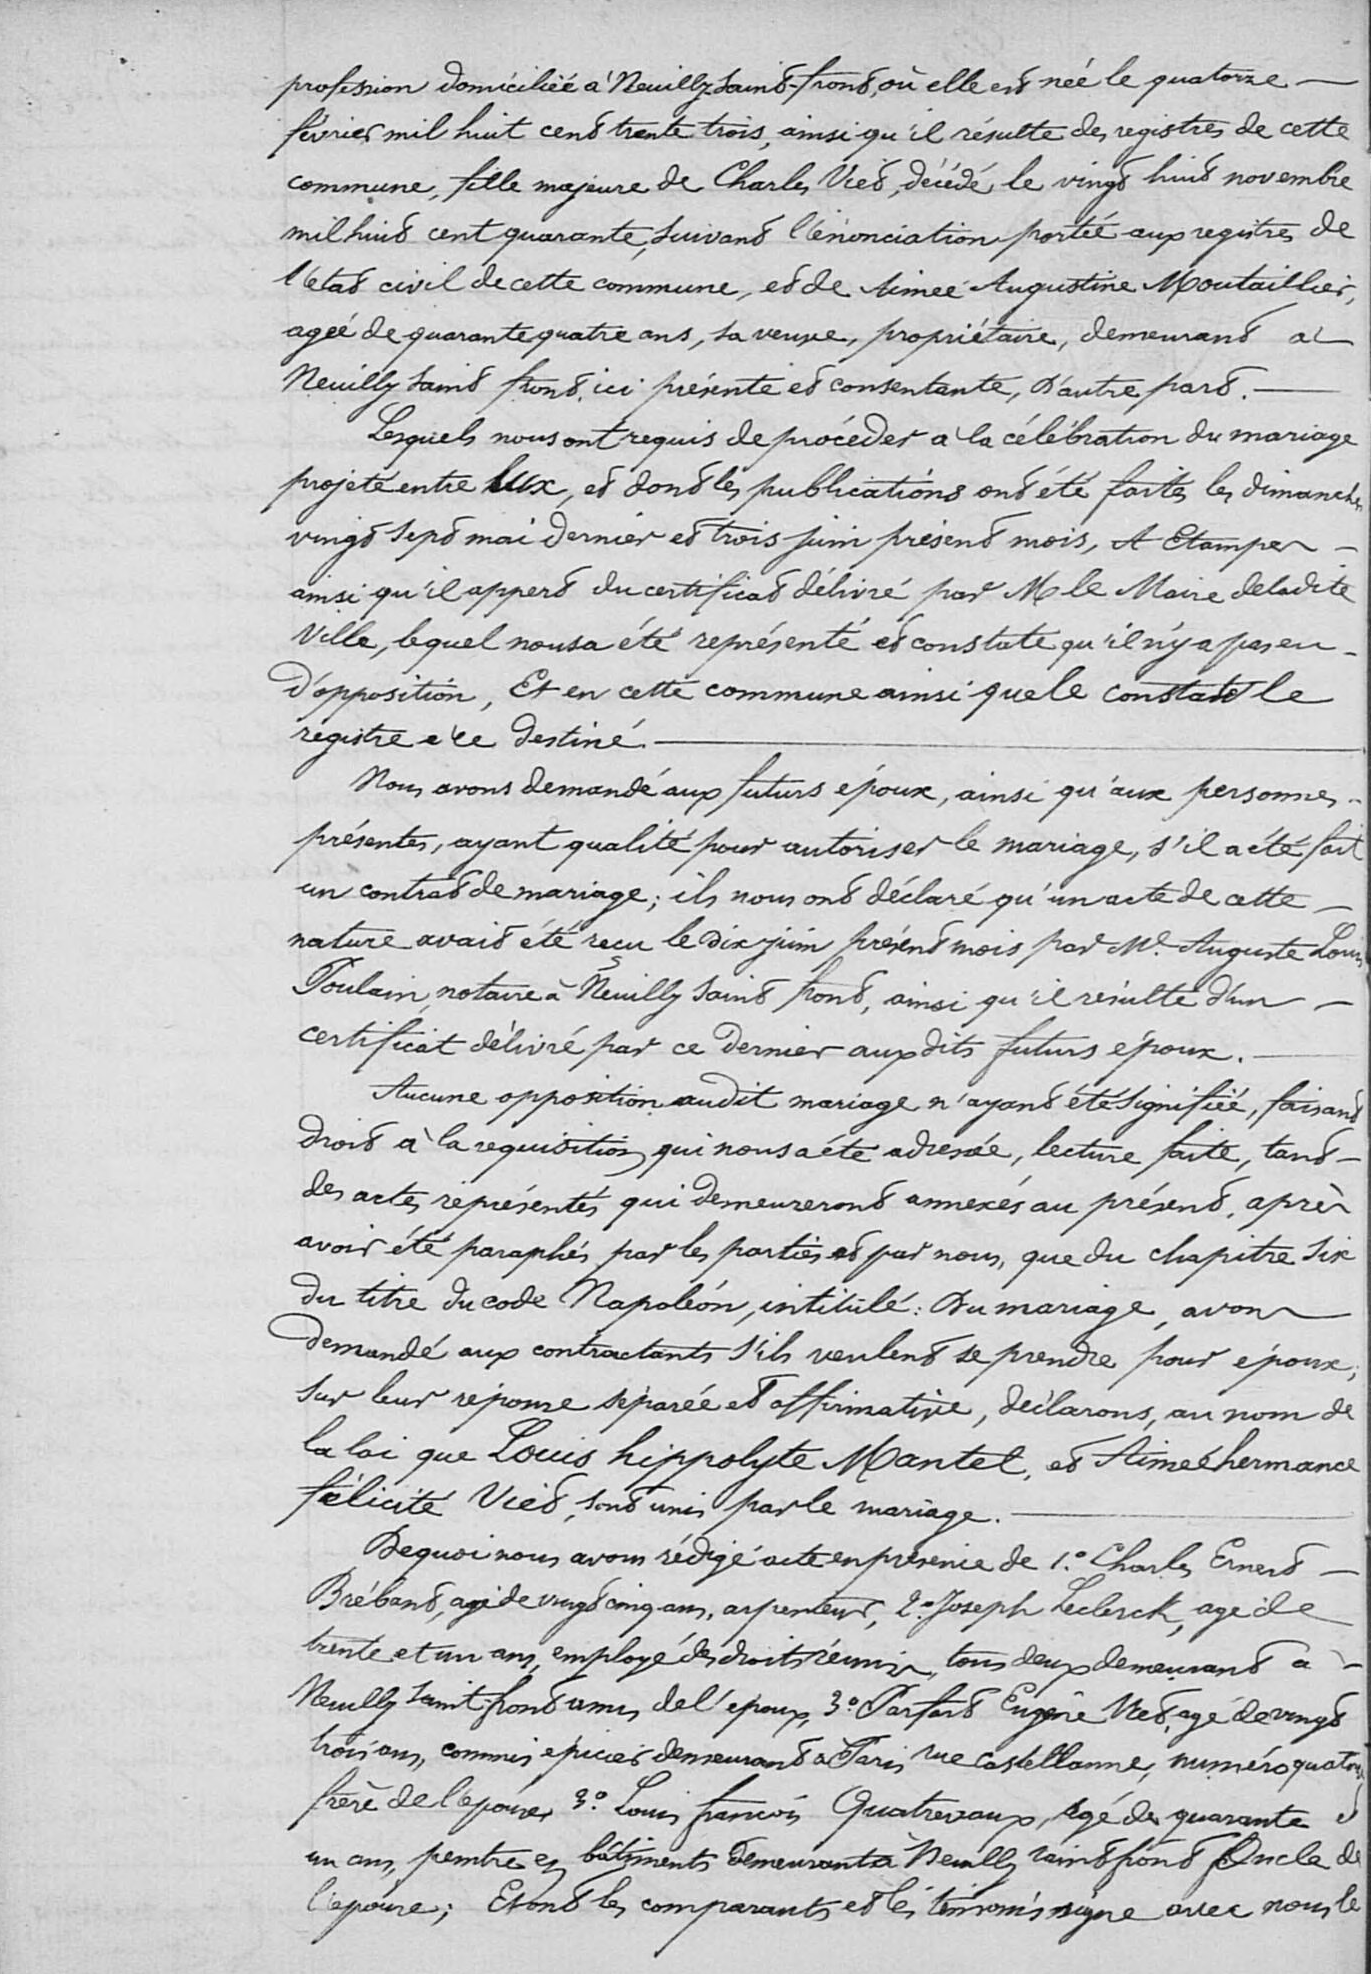 profession domiciliée à Neuilly saint-front, où elle est née le quatorze —
février mil huit cent trente trois, ainsi qu'il résulte des registres de cette
commune, fille majeure de Charles Viet, décédé, le vingt huit novembre
mil huit cent quarante, suivant l'énonciation portée aux registres de
l'état civil de cette commune, et de Aimée Augustine Moutaillier,
agée de quarante quatre ans, sa veuve, propriétaire, demeurant à
Neuilly saint front, ici présente et consentante, D'autre part. —
Lesquels nous ont requis de procéder à la célébration du mariage
projeté entre eux, et dont les publications ont été faites les dimanches
vingt sept mai dernier et trois juin présent mois, A Etampes —
ainsi qu'il appert du certificat délivré par M le Maire de ladite
Ville, lequel nous a été représenté et constate qu'il n'y a pas eu —
d'opposition, Et en cette commune ainsi que le constate le
registre à ce destiné. —
Nous avons demandé aux futurs époux, ainsi qu'aux personnes —
présentes, ayant qualité pour autoriser le mariage, s'il a été fait
un contrat de mariage; ils nous ont déclaré qu'un acte de cette —
nature avait été reçu le dix juin présent mois par Me. Auguste Louis
Poulain, notaire à Neuilly saint front, ainsi qu'il résulte d'un —
certificat délivré par ce dernier aux dits futurs époux. —
Aucune opposition audit mariage n'ayant été signifiée, faisant
droit à la requisition qui nous a été adressée, lecture faite, tant —
des actes représentés qui demeureront annexés au présent, après
avoir été paraphés par les parties et par nous, que du chapitre six
du titre du code Napoléon, intitulé: Du mariage, avons
demandé aux contractants s'ils veulent se prendre pour époux;
sur leur réponse séparée et affirmative, déclarons, au nom de
la loi que Louis hippolyte Mantel, et Aimée hermance
félicité Viet, sont unis par le mariage. —
De quoi nous avons rédigé acte en présence de 1.° Charles Ernest —
Brébant, agé de vingt cinq ans, arpenteur, 2.° Joseph Leclerck, agé de
trente et un ans, employé des droits réunis, tous deux demeurant à —
Neuilly saint-front amis de l'époux, 3.° Parfait Eugène Viet, agé de vingt
trois ans, commis épicier demeurant à Paris rue Castellanne, numéro quatorze
frère de l'épouse, 3.° Louis françois Quatrevaux, agé de quarante et
un ans, peintre en bâtiments demeurant à Neuilly saint front Oncle de
l'épouse; Et ont les comparants et les témoins signé avec nous le